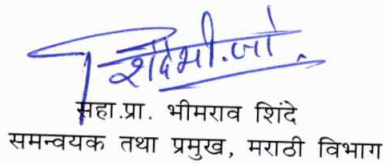 शिंदे भी.जी.
सहा.प्रा. भीमराव शिंदे
समन्वयक तथा प्रमुख, मराठी विभाग